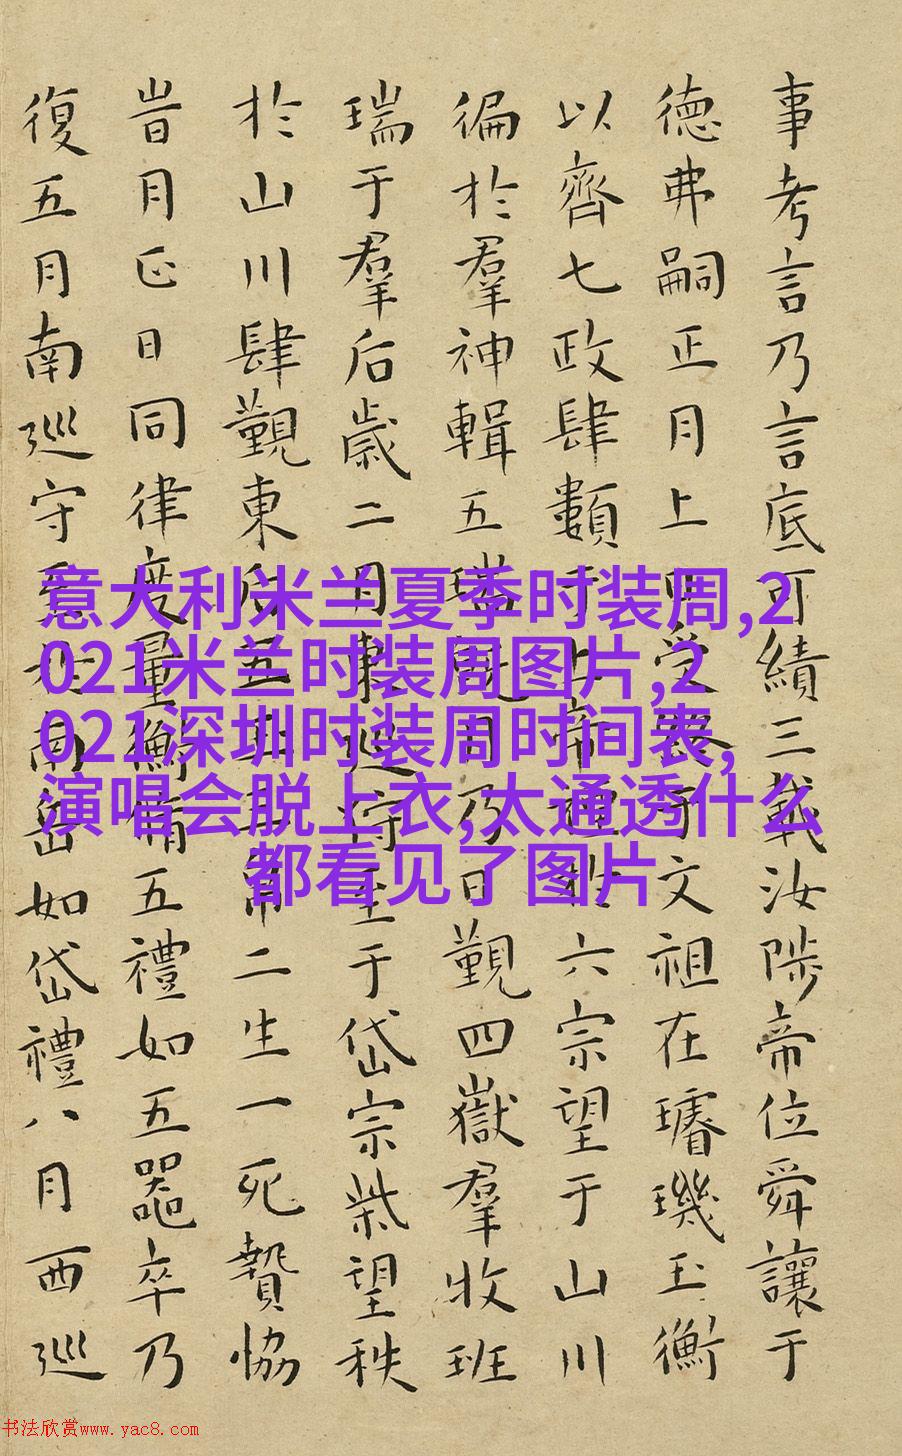 事考言乃言底可績三載汝陟帝位舜讓于
德弗嗣正月上日受終于文祖在璿璣玉衡
以齊七政肆類于上帝禋于六宗望于山川
徧於羣神輯五瑞既月乃日覲四嶽羣牧班
瑞于羣后歲二月東巡狩至于岱宗柴望秩
於山川肆覲東后五玉三帛二生一死贄協
旹月正日同律度量衡脩五禮如五器卒乃
復五月南巡守至于南岳如岱禮八月西巡
意大利米兰夏季时装周,2
021米兰时装周图片,2
021深圳时装周时间表,
演唱会脱上衣,太通透什么
都看见了图片
书法欣赏www.yac8.com